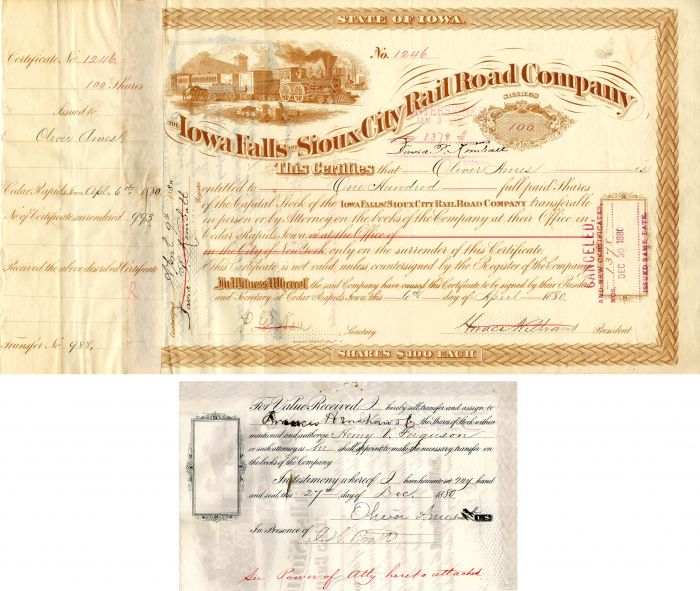 Certificate No. 1246
100 Shares
Issued to
Oliver Ames
Cedar Rapids, Iowa Apl. 6th 1880
No. of Certificate surrendered 993
Received the above described Certificate
R
Transfer No. 988
Register
David P. Kimball
STATE OF IOWA.
No. 1246
THE IOWA FALLS AND SIOUX CITY RAIL ROAD COMPANY
SHARES
100.
1378
David P. Kimball
This Certifies that Oliver Ames is
entitled to One Hundred full paid Shares
of the Capital Stock of the IOWA FALLS & SIOUX CITY RAIL ROAD COMPANY transferable
in person or by Attorney on the books of the Company at their Office in
Cedar Rapids, Iowa or at the Office of
in the City of New York only on the surrender of this Certificate
This Certificate is not valid unless countersigned by the Register of the Company
In Witness Whereof the said Company have caused this Certificate to be signed by their President
and Secretary at Cedar Rapids, Iowa, this 6th day of April 1880.
Secretary
Horace Williams President
SHARES $100 EACH
CANCELED,
AND NEW CERTIFICATES
NOS. 1378
DEC 30 1880
ISSUED SAME DATE
For Value Received I hereby sell, transfer and assign to
Francis the Shares of Stock within
mentioned and authorize Henry V. Ferguson
or such attorney as he shall appoint to make the necessary transfer on
the books of the Company
In testimony whereof I have hereunto set my hand
and seal, this 27th day of Dec. 1880.
Oliver Ames
In Presence of
See Power of Atty hereto attached.